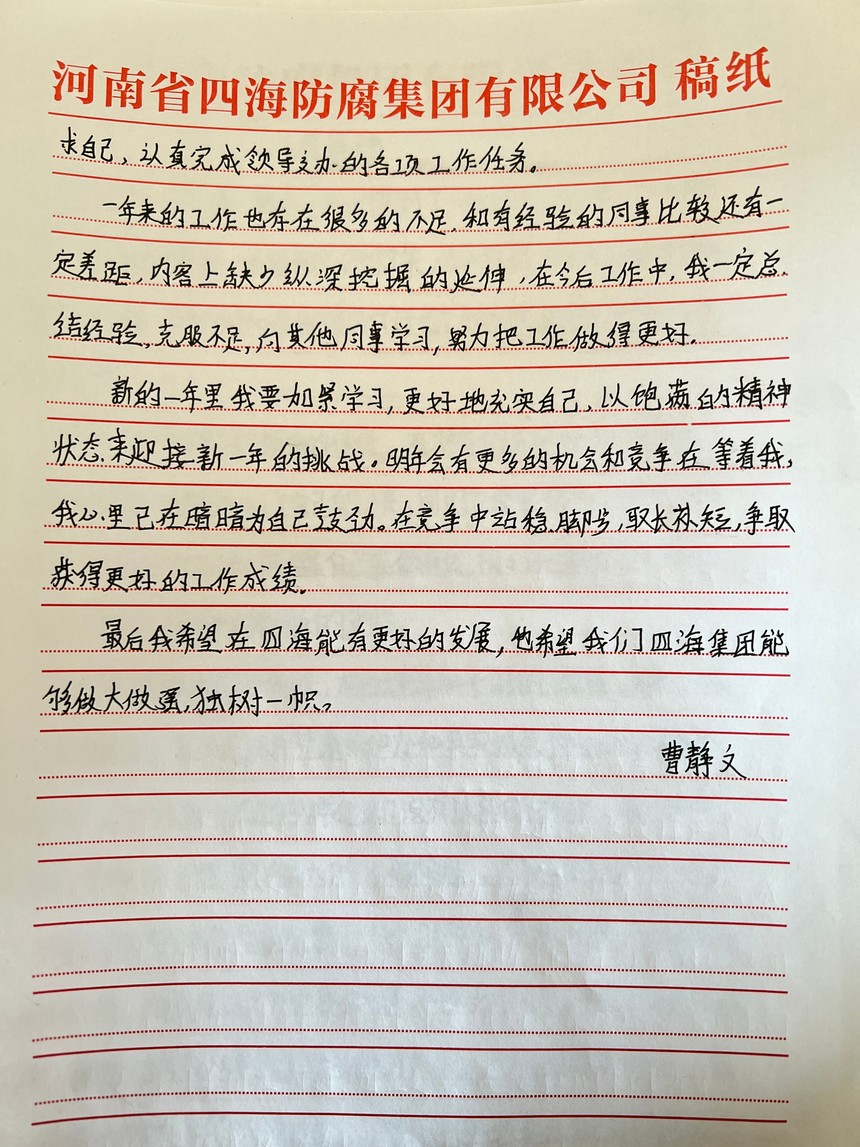 河南省四海防腐集团有限公司 稿纸
求自己，认真完成领导交办的各项工作任务。
一年来的工作也存在很多的不足，和有经验的同事比较还有一
定差距，内容上缺少纵深挖掘的延伸，在今后工作中，我一定总
结经验，克服不足，向其他同事学习，努力把工作做得更好。
新的一年里我要加紧学习，更好地充实自己，以饱满的精神
状态来迎接新一年的挑战。明年会有更多的机会和竞争在等着我，
我心里已在暗暗为自己鼓劲。在竞争中站稳脚步，取长补短，争取
获得更好的工作成绩。
最后我希望在四海能有更好的发展，也希望我们四海集团能
够做大做强，独树一帜。
曹静文